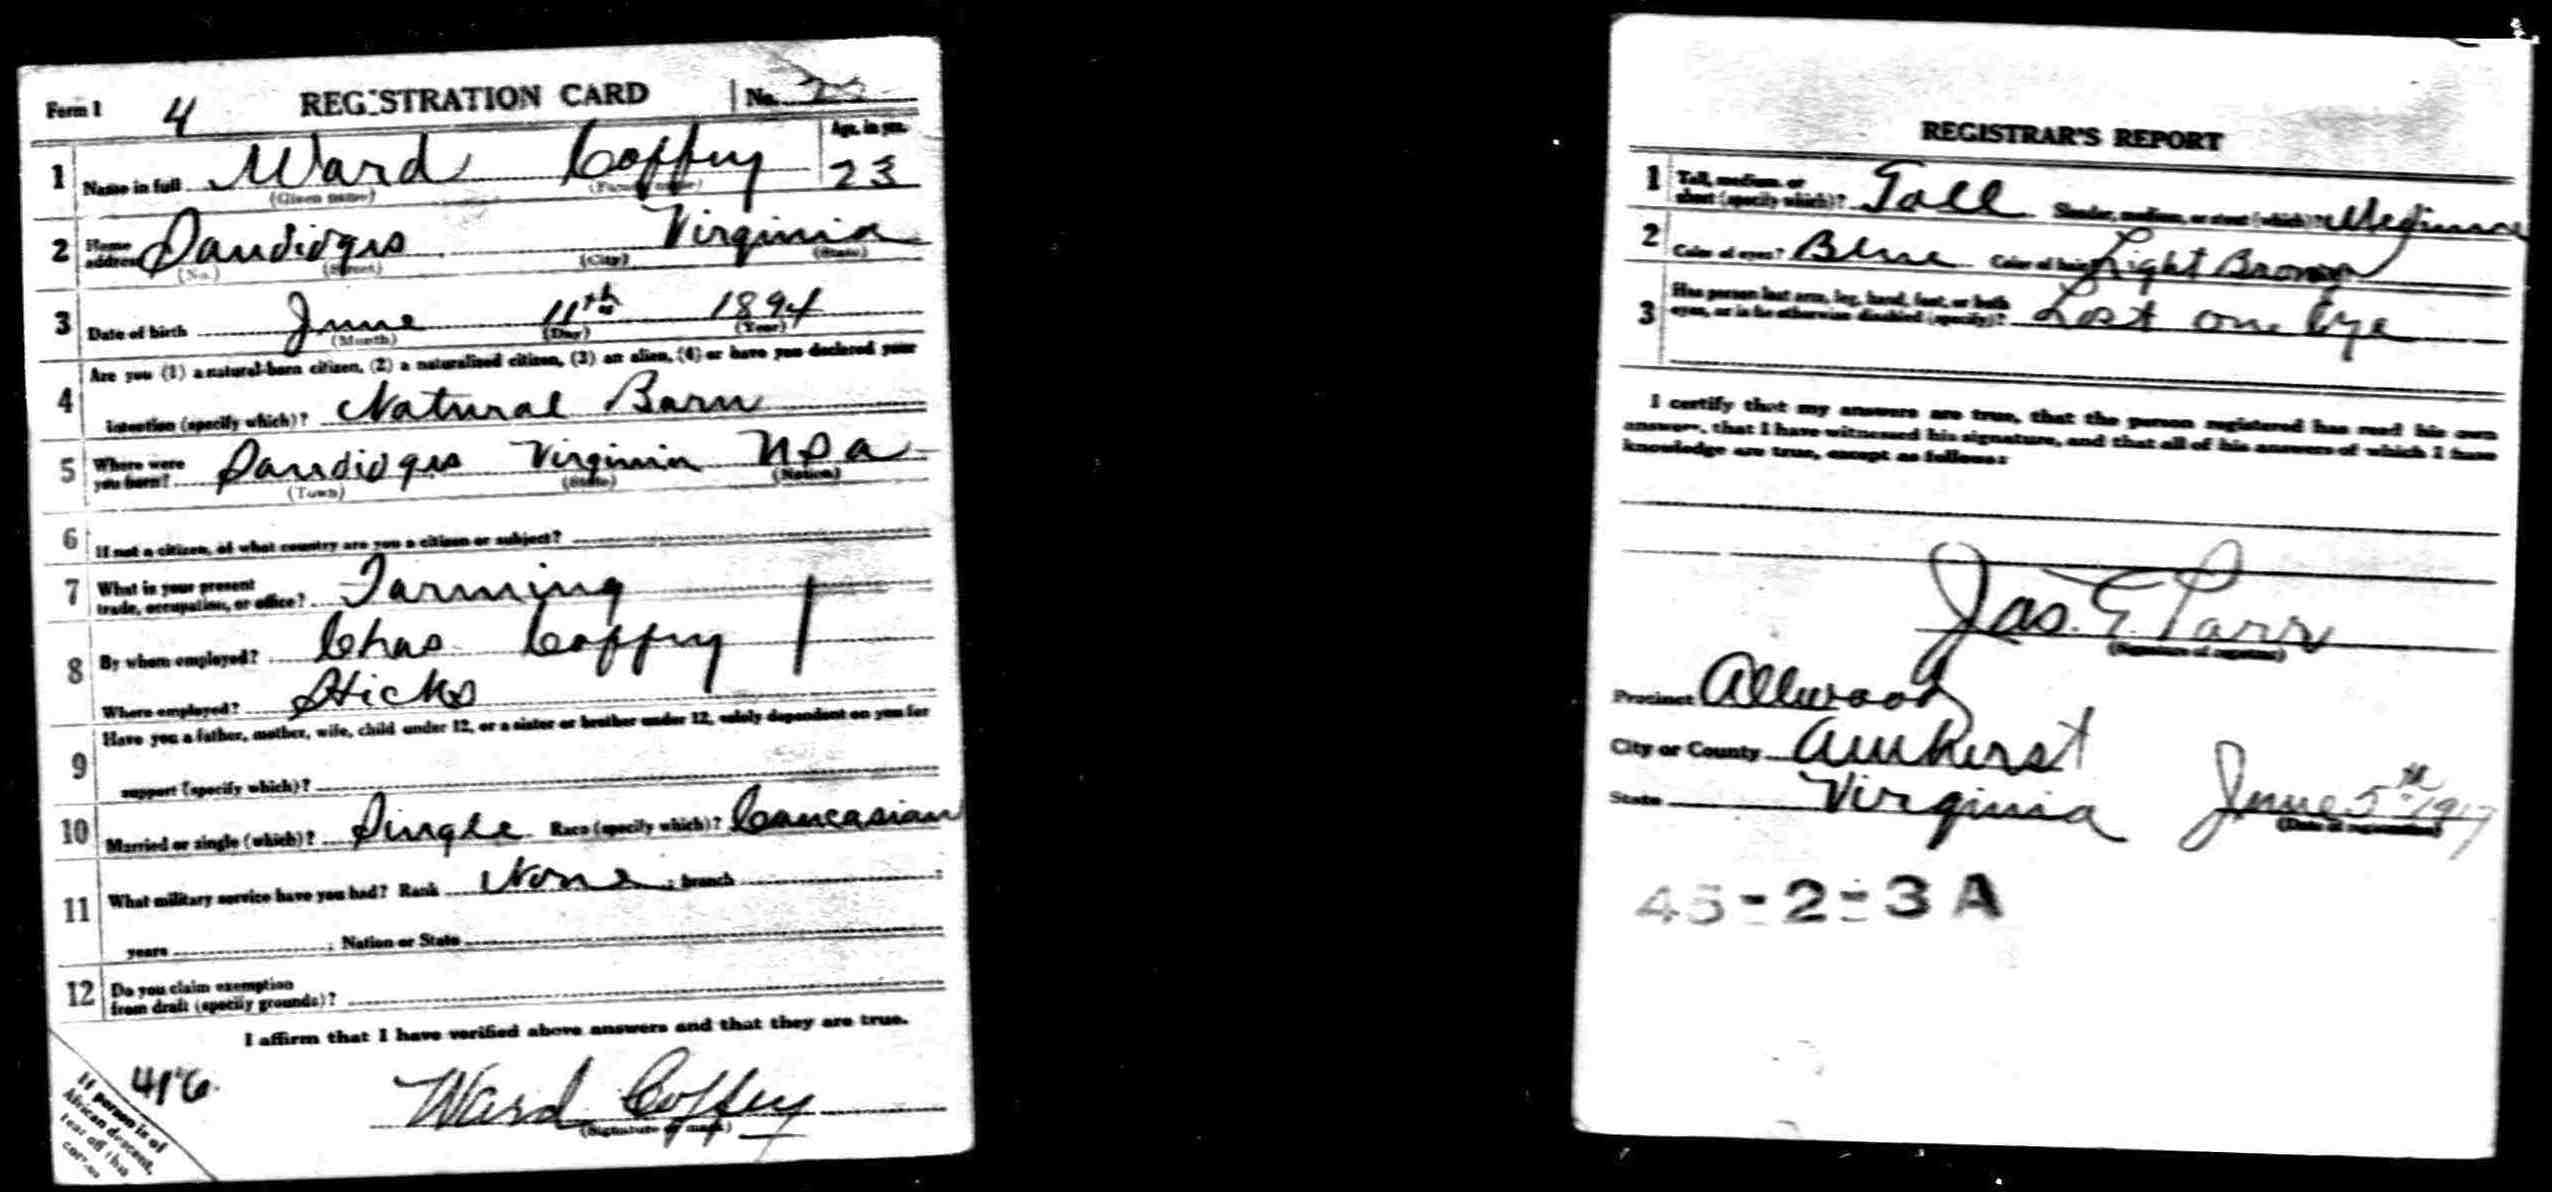 Form 1 4 REGISTRATION CARD No.
1 Name in full Ward Coffey Age, in yrs. 23
(Given name) (Family name)
2 Home address Dandidges Virginia
(No.) (Street) (City) (State)
3 Date of birth June 11th 1894
(Month) (Day) (Year)
4 Are you (1) a natural-born citizen, (2) a naturalized citizen, (3) an alien, (4) or have you declared your
intention (specify which)? Natural Born
5 Where were you born? Dandidges Virginia USA
(Town) (State) (Nation)
6 If not a citizen, of what country are you a citizen or subject?
7 What is your present trade, occupation, or office? Farming
8 By whom employed? Chas Coffey
Where employed? Hicks
9 Have you a father, mother, wife, child under 12, or a sister or brother under 12, solely dependent on you for
support (specify which)?
10 Married or single (which)? Single Race (specify which)? Caucasian
11 What military service have you had? Rank None ; branch ;
years ; Nation or State
12 Do you claim exemption from draft (specify grounds)?
I affirm that I have verified above answers and that they are true.
416
Ward Coffey
(Signature or mark)
If person is of
African descent,
tear off this
corner
REGISTRAR'S REPORT
1 Tall, medium, or short (specify which)? Tall Slender, medium, or stout (which)? Medium
2 Color of eyes? Blue Color of hair? Light Brown
3 Has person lost arm, leg, hand, foot, or both eyes, or is he otherwise disabled (specify)? Lost one Eye
I certify that my answers are true, that the person registered has read his own
answers, that I have witnessed his signature, and that all of his answers of which I have
knowledge are true, except as follows:
Jas. E. Parr
(Signature of registrar)
Precinct Allwood
City or County Amherst
State Virginia June 5th 1917
(Date of registration)
45-2-3 A